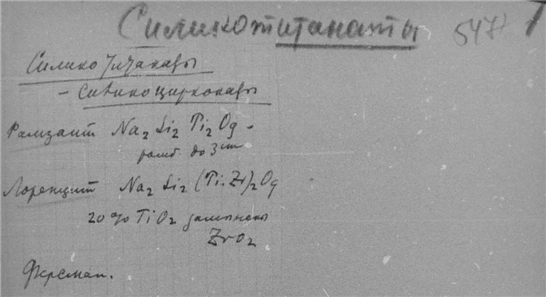 Силикотитанаты 547
Силикотитанаты
- Силикоцирконаты
Рамзаит Na2 Si2 Ti2 O9 -
ромб. до 3
Лоренцит Na2 Si2 (Ti.Zr)2 O9
20% TiO2 замещены
ZrO2
Ферсман.